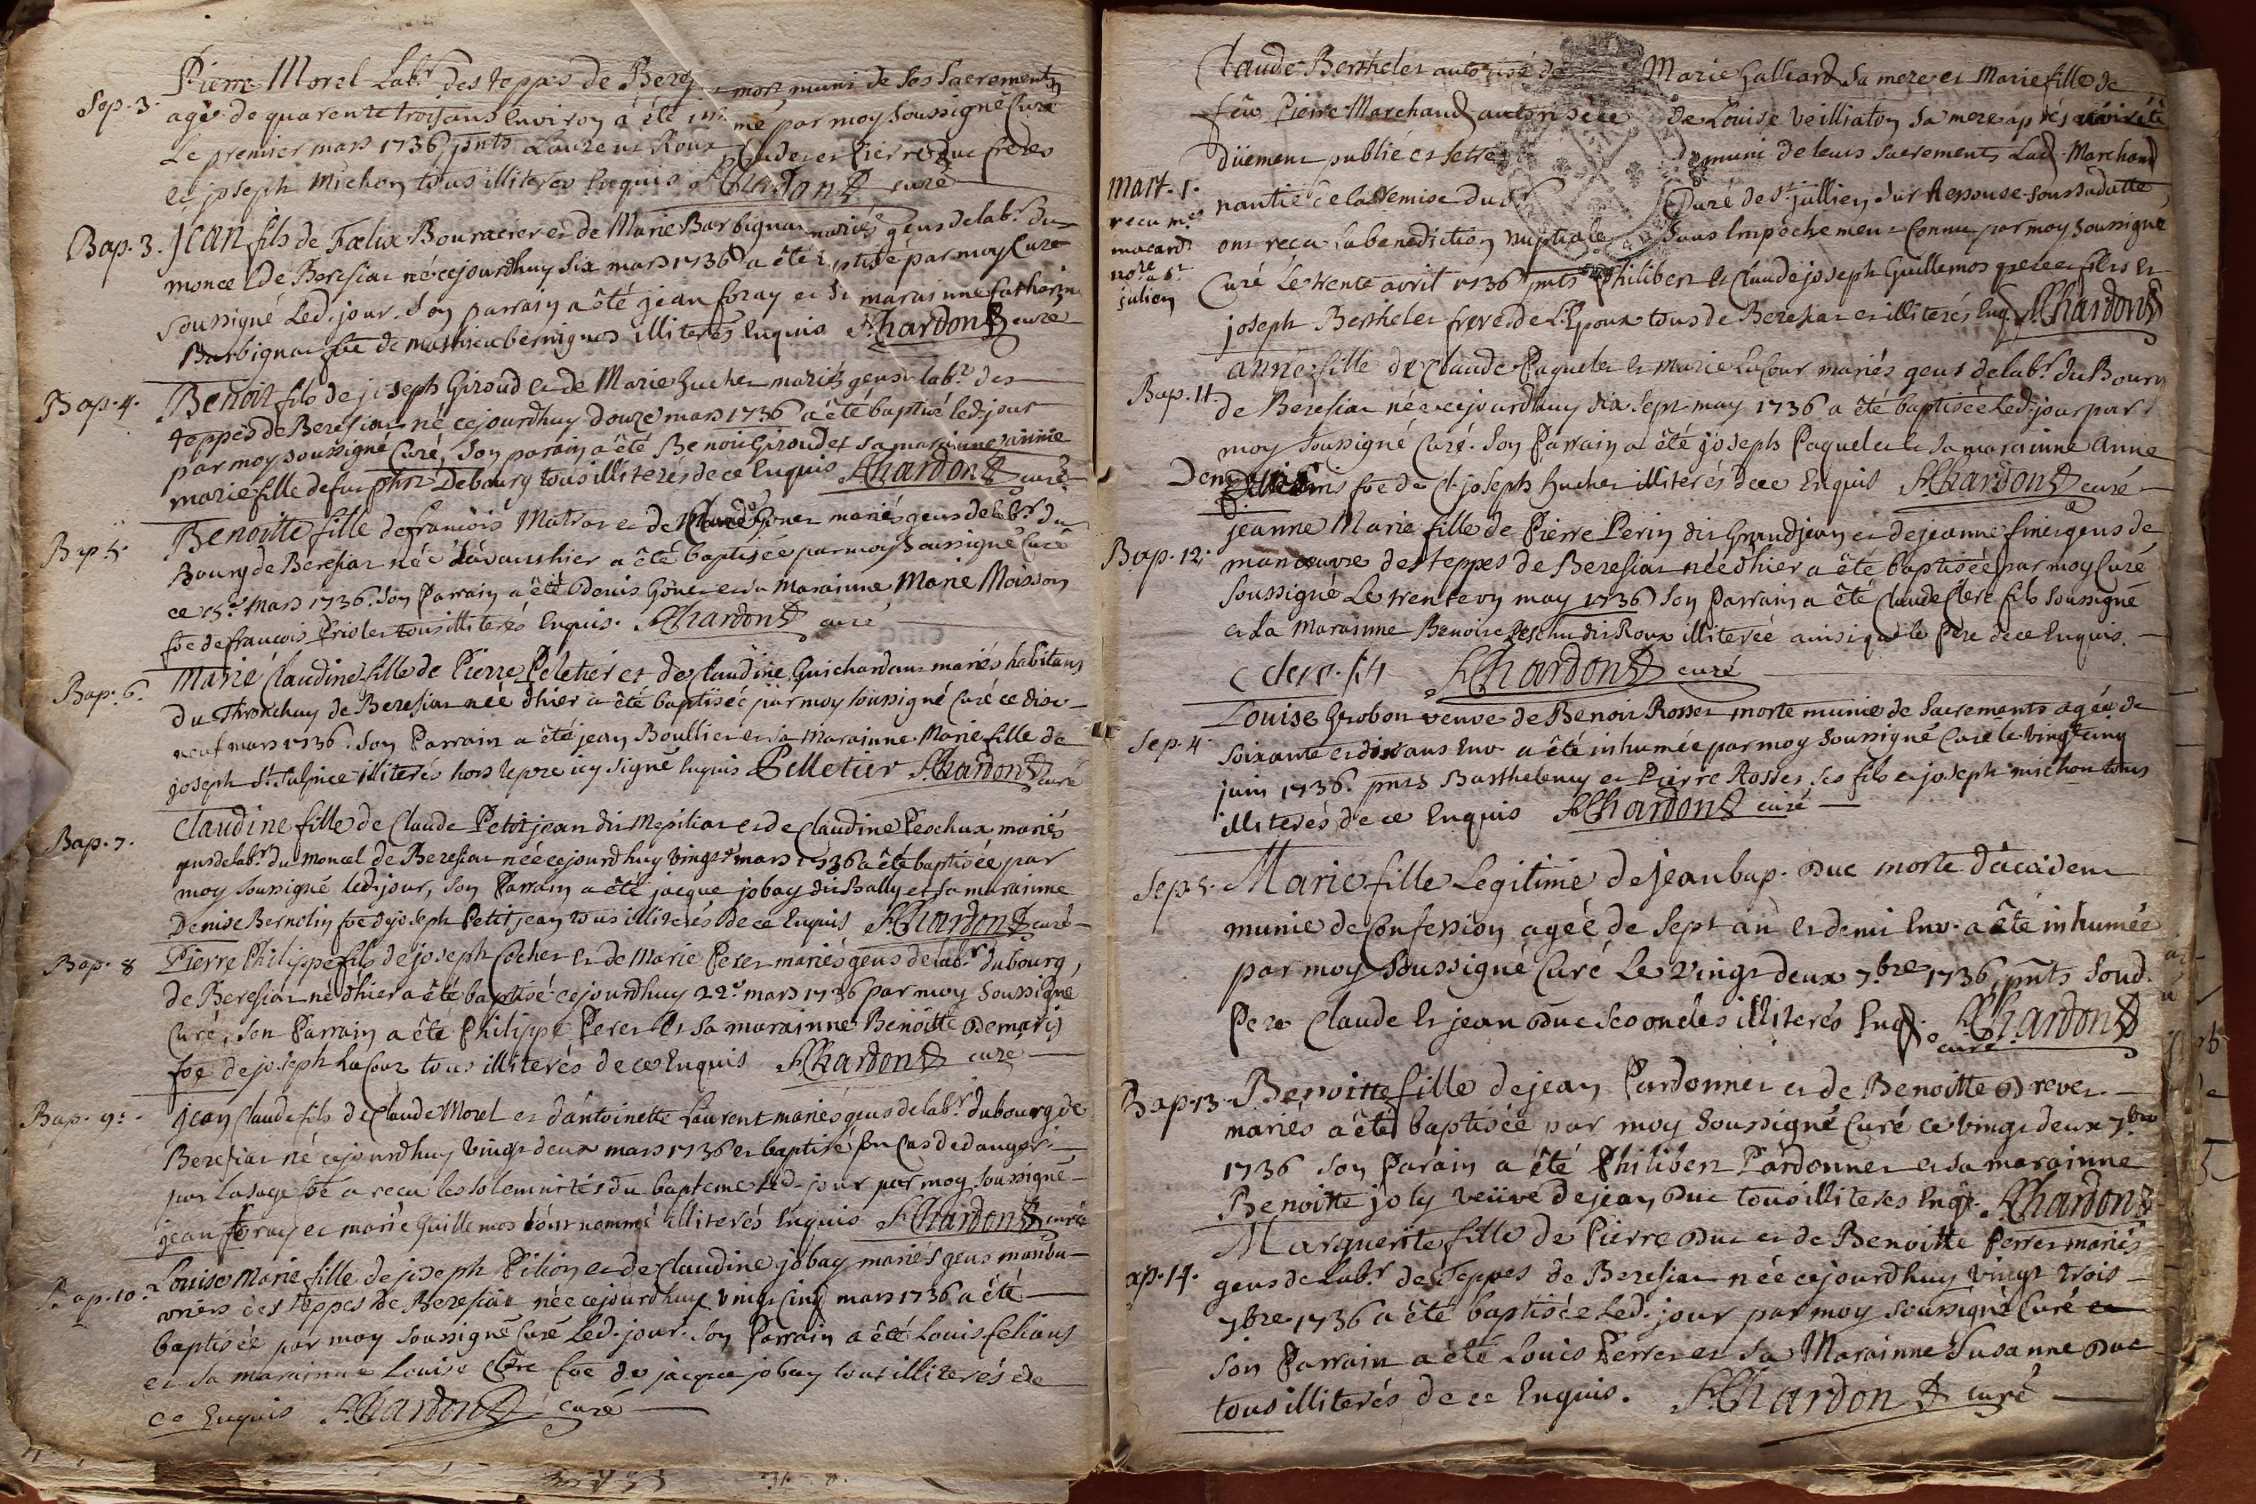 Sep. 3. Pierre Morel Labr. des teppes de Berez mort muni de ses Sacrements
agé de quarente trois ans Environ a été inhumé par moy Soussigné Curé
Le premier mars 1736 pnts Laurent Roux Claude et Pierre Duc freres
et joseph Michon tous illiterés Enquis f. Chardon curé
Bap. 3. jean fils de Foelix et de Marie Barbignat mariés gens de labr. du
moncel De Beresiat né cejourdhuy six mars 1736 a été par moy Curé
soussigné Led. jour. son parrain a été jean foray et sa marainne Catherine
Barbignat foe de mathieu illiterés Enquis f. Chardon curé
Bap. 4. Benoit fils de joseph Giroud et de Marie huchet mariés gens de labr. des
teppes de Beresiat né cejourdhuy douze mars 1736 a été baptisé led. jour
par moy soussigné Curé, Son parain a été Benoit Giroud et sa marainne
marie fille de feu Debourg tous illiteres de ce Enquis f. Chardon curé
Bap. 5. Benoitte fille de francois Matrat et de Goner mariés gens de labr. du
Bourg de Beresiat née hier a été baptisée par moy Soussigné Curé
ce mars 1736. Son Parrain a été Denis Goner et sa Marainne Marie Moisson
foe de francois Priolet tous illiterés Enquis. f. Chardon curé
Bap. 6. Marie Claudine fille de Pierre Peletier et de Claudine Guichardant mariés habitans
du Thronchay de Beresiat née dhier a été baptisée par moy soussigné Curé ce dix-
neuf mars 1736. Son Parrain a été jean Boullier et sa Marainne Marie fille de
joseph St. Sulpice illiterés hors lepere icy signé Enquis Pelletier f. Chardon curé
Bap. 7. Claudine fille de Claude Petitjean dit Mepiliat et de Claudine Peschux mariés
gens de labr. du moncel de Beresiat née cejourdhuy vingt mars 1736 a été baptisée par
moy soussigné led. jour, son Parrain a été jacque jobay dit Bally et sa marainne
Denise Bernolin foe de joseph Petitjean tous illiterés de ce Enquis f. Chardon curé
Bap. 8 Pierre Philippe fils de joseph Cochet et de Marie Peret mariés gens de labr. du bourg,
de Beresiat né dhier a été baptisé cejourdhuy 22e mars 1736 par moy Soussigné
Curé, Son Parrain a été Philippe Peret et sa marainne Benoitte Demaris
foe de joseph LaCour tous illiterés de ce Enquis f. Chardon curé
Bap. 9e. jean Claude fils de Claude Morel et dantoinette Laurent mariés gens de labr. du bourg de
Beresiat né cejourdhuy vingt deux mars 1736 et baptisé En Cas de danger
par La sage foe a recu les solemnités du bapteme Led. jour par moy Soussigné
jean foray et marie Guillemot l'ont nommé illiterés Enquis f. Chardon curé
Bap. 10. Louise Marie fille de joseph Pition et de Claudine jobay mariés gens manou-
vriers des teppes de Beresiat née cejourdhuy vingt Cinq mars 1736 a été
baptisée par moy Soussigné Curé Led. jour. Son Parrain a été Louis felians
et sa marainne Louise Clere foe de jacque jobay tous illiterés de
ce Enquis f. Chardon curé
Claude Berthelet autorisé de Marie Galliard Sa mere et Marie fille de
feu Pierre Marchand autorisée de Louise Veilliaton Sa mere après
düement publié et muni de leurs Sacrements Lad. Marchand
Mart. 1. nantie de la Remise du Sr Curé de st. jullien sur Ressouse Sous Sa datte
recu me macard nore a st julien
ont reçu La benediction nuptiale Sans Empechement Connu par moy soussigné
Curé Le trente avril 1736 pnts Philibert et Claude joseph Guillemot pere et fils et
joseph Berthelet frere de L'Epoux tous de Beresiat et illiterés Enq. f. Chardon
Bap. 11. anne fille de Claude Paquelet et marie LaCour mariés gens de labr. du Bourg
de Beresiat née cejourdhuy dix sept may 1736 a été baptisée Led. jour par
moy soussigné Curé. Son Parrain a été joseph Paquelet et sa marainne Anne
foe de Cl. joseph huchet illiterés de ce Enquis f. Chardon curé
Bap. 12. jeanne Marie fille de Pierre Perin dit Grandjean et de jeanne gens de
manoeuvre des teppes de Beresiat née dhier a été baptisée par moy Curé
Soussigné Le trente un may 1736 Son Parrain a été Claude Clere fils Soussigné
et La Marainne Benoite Peschu dit Roux illiterée ainsi que le Pere de ce Enquis.
Clere f. Chardon curé
Sep. 4. Louise Grobon veuve de Benoit Rosset morte munie de Sacrements agée de
Soixante et dix ans Env. a été inhumée par moy Soussigné Curé le vingt cinq
juin 1736. pnts Barthelemy et Pierre Rosset ses fils et joseph michon tous
illiterés de ce Enquis f. Chardon curé
Sep. 5. Marie fille Legitime de jean bap. Duc morte dácident
munie de Confession agée de sept an et demi Env. a été inhumée
par moy Soussigné Curé Le vingt deux 7.bre 1736, pnts Soud.
Pere Claude et jean Duc ses oncles illiterés Enq. f. Chardon curé
Bap. 13. Benoitte fille de jean Pardonnet et de Benoitte Drevet
mariés a été baptisée par moy Soussigné Curé ce vingt deux 7.bre
1736 Son Parain a été Philibert Pardonnet et sa marainne
Benoitte joly veüve de jean Duc tous illiteres Enq. f. Chardon
ap. 14. Marguerite fille de Pierre Duc et de Benoitte Perret mariés
gens de Labr. des Teppes de Beresiat née cejourdhuy vingt trois
7bre. 1736 a été baptisée Led. jour par moy Soussigné Curé et
Son Parrain a été Louis Perret et sa Marainne Susanne Duc
tous illiterés de ce Enquis. f. Chardon curé